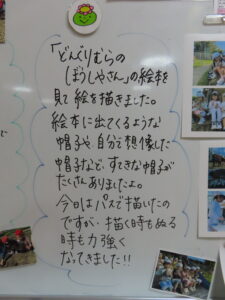 「どんぐりむらの
ぼうしやさん」の絵本を
見て絵を描きました。
絵本に出てくるような
帽子や、自分で想像した
帽子など、すてきな帽子が
たくさんありましたよ。
今日はパスで描いたの
ですが、描く時もぬる
時も力強く
なってきました!!